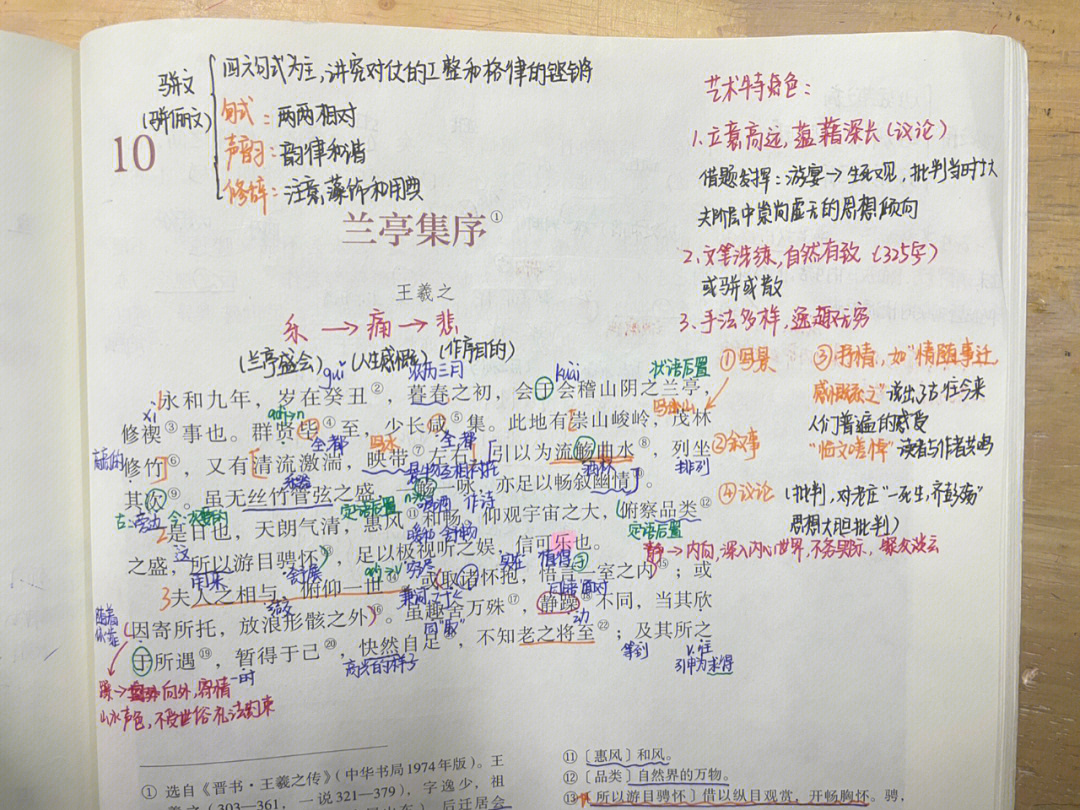 骈文
(骈俪文)
四六句式为主,讲究对仗的工整和格律的铿锵
句式：两两相对
声韵：韵律和谐
修辞：注意藻饰和用典
10
兰亭集序①
王羲之
乐→痛→悲
(兰亭盛会)(人生感慨)(作序目的)
艺术特色：
1.立意高远,蕴藉深长(议论)
借题发挥：游宴→生死观,批判当时士大
夫阶层中崇尚虚无的思想倾向
2.文笔洗练,自然有致（325字）
或骈或散
3.手法多样,逸趣无穷
①写景
②叙事
③抒情,如“情随事迁
感慨系之”说出了古往今来
人们普遍的感受
“临文嗟悼”读者与作者共鸣
④议论(批判,对老庄“一死生,齐彭殇”
思想大胆批判)
静→内向,深入内心世界,不务实际,
guǐ
农历三月
kuài
状语后置
永和九年，岁在癸丑②，暮春之初，会于会稽山阴之兰亭，
xì
adj→n
写山
修禊③事也。群贤毕④至，少长咸⑤集。此地有崇山峻岭，茂林
高高的
全都
写水
全都
修竹⑥，又有清流激湍，映带⑦左右，引以为流觞曲水⑧，列坐
酒杯
排列
其次⑨。虽无丝竹管弦之盛，一觞一咏，亦足以畅叙幽情⑩。
古：旁边 今：次要的
定语后置
喝酒 作诗
是日也，天朗气清，惠风⑪和畅，仰观宇宙之大，俯察品类⑫
这
温和 舒畅
定语后置
之盛，所以游目骋怀⑬，足以极视听之娱，信可乐也。
用来
舒展
adj→v 穷尽
实在 值得
夫人之相与，俯仰一世⑭，或取诸怀抱，悟言一室之内⑮；或
交往
兼词“之于”
同“晤”面对
随着
依靠
因寄所托，放浪形骸之外⑯。虽趣舍万殊⑰，静躁⑱不同，当其欣
同“取”
动
于所遇⑲，暂得于己⑳，快然自足㉑，不知老之将至㉒；及其所之
一时
高兴的样子
等到
v.往
引申为求得
躁→向外,寄情
山水声色,不受世俗礼法约束
① 选自《晋书·王羲之传》（中华书局1974年版）。王
羲之（303—361，一说321—379），字逸少，祖
后迁居会
⑪〔惠风〕和风。
⑫〔品类〕自然界的万物。
⑬〔所以游目骋怀〕借以纵目观赏，开畅胸怀。骋，